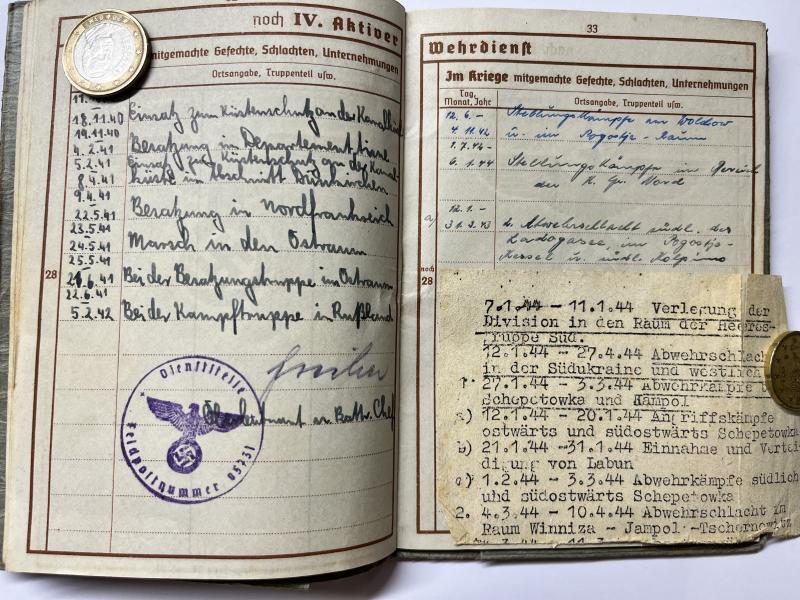 noch IV. Aktiver
mitgemachte Gefechte, Schlachten, Unternehmungen
Ortsangabe, Truppenteil usw.
18.11.40 Einsatz zum Küstenschutz an der Kanalküste
19.11.40
4.2.41 Besatzung im Departement
5.2.41 Einsatz zum Küstenschutz an der Kanal-
8.4.41 küste im Abschnitt Dünkirchen
9.4.41
22.5.41 Besatzung in Nordfrankreich
23.5.41
24.5.41 Marsch in den Ostraum
25.5.41
28
21.6.41 Bei der Besatzungstruppe im Ostraum
22.6.41
5.2.42 Bei der Kampftruppe in Rußland
Oberleutnant u. Battr. Chef
Dienststelle
Feldpostnummer 05731
33
Wehrdienst
Im Kriege mitgemachte Gefechte, Schlachten, Unternehmungen
Tag, Monat, Jahr
Ortsangabe, Truppenteil usw.
12.6.– Stellungskämpfe am Wolchow
4.11.42 u. im Pogostje-Raum
1.7.44–
6.1.44 Stellungskämpfe im Bereich
der H. Gr. Nord
a) 12.1.–
31.3.43 2. Abwehrschlacht südl. des
Ladogasees, im Pogostje-
Kessel u. südl. Kolpino
noch
28
7.1.44 – 11.1.44 Verlegung der
Division in den Raum der Heeres-
gruppe Süd.
12.1.44 – 27.4.44 Abwehrschlach
in der Südukraine und westlich
1. 27.1.44 – 3.3.44 Abwehrkämpfe
Schepetowka und Jampol
a) 12.1.44 – 20.1.44 Angriffskämpfe
ostwärts und südostwärts Schepetowka
b) 21.1.44 – 31.1.44 Einnahme und Vertei-
digung von Labun
c) 1.2.44 – 3.3.44 Abwehrkämpfe südlich
und südostwärts Schepetowka
2. 4.3.44 – 10.4.44 Abwehrschlacht im
Raum Winniza – Jampol -Tschernowitz